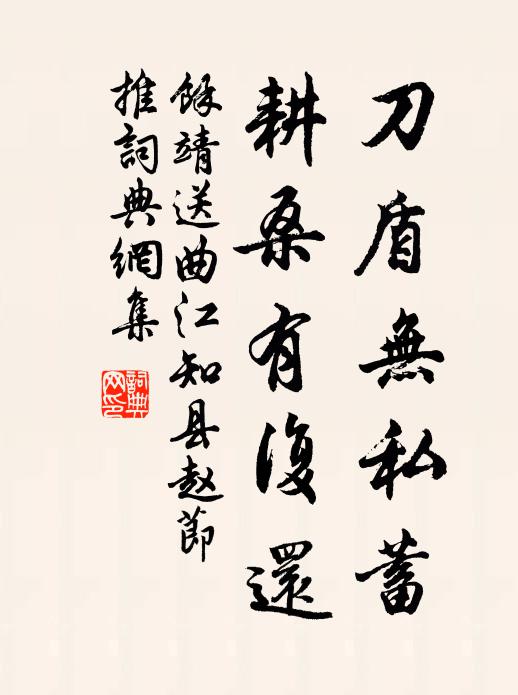 刀盾無私蓄
耕桑有復還
餘靖送曲江知县赵節
推詞典網集
詞典网印